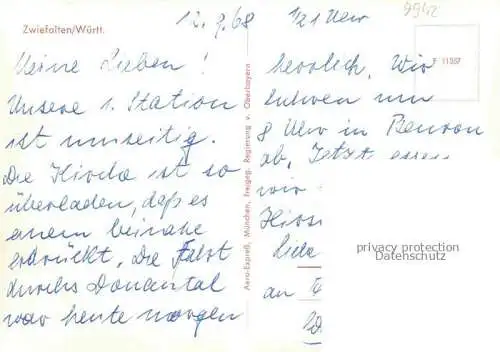 12.9.68
1/21 Uhr
9942
Zwiefalten/Württ.
F 11557
Meine Lieben!
Unsere 1. Station
ist umseitig.
Die Kirche ist so
überladen, daß es
einem beinahe
erdrückt. Die Fahrt
durchs Donautal
war heute morgen
Aero-Expreß, München, Freigeg. Regierung v. Oberbayern
herrlich. Wir
fuhren um
8 Uhr in Beuron
ab. Jetzt essen
wir
an
privacy protection
Datenschutz